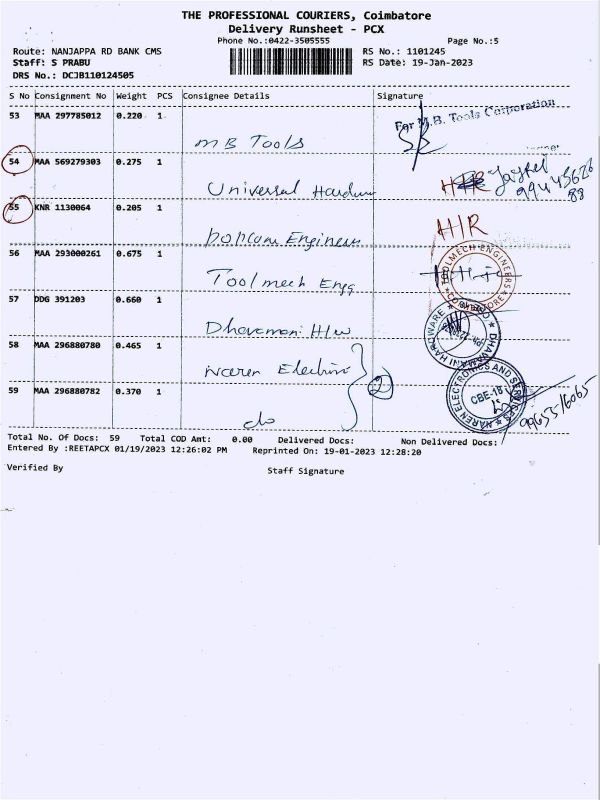 THE PROFESSIONAL COURIERS, Coimbatore
Delivery Runsheet - PCX
Phone No.:0422-3505555 Page No.:5
Route: NANJAPPA RD BANK CMS RS No.: 1101245
Staff: S PRABU RS Date: 19-Jan-2023
DRS No.: DCJB110124505
S No Consignment No Weight PCS Consignee Details Signature
53 MAA 297785012 0.220 1 MB Tools For M.B. Tools Corporation
54 MAA 569279303 0.275 1 Universal
55 KNR 1130064 0.205 1 Engineers H/R
56 MAA 293000261 0.675 1 Toolmech Engg TOOLMECH ENGINEERS
57 DDG 391203 0.660 1 Dhavamani H/w DHAVAMANI HARDWARE
58 MAA 296880780 0.465 1 Naren 2
59 MAA 296880782 0.370 1 do NAREN ELECTRONICS AND SERVICES CBE-18
Total No. Of Docs: 59 Total COD Amt: 0.00 Delivered Docs: Non Delivered Docs:
Entered By :REETAPCX 01/19/2023 12:26:02 PM Reprinted On: 19-01-2023 12:28:20
Verified By Staff Signature